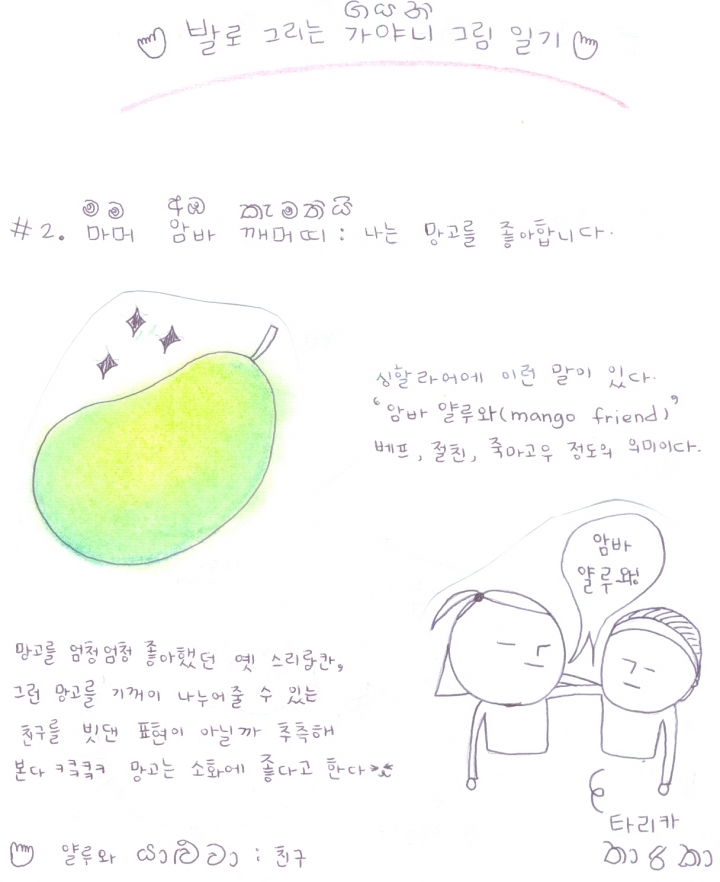 발로 그리는 가야니 그림 일기
මම අඹ කැමතියි
#2. 마머 암바 깨머띠 : 나는 망고를 좋아합니다.
싱할라어에 이런 말이 있다.
'암바 얄루와(mango friend)'
베프, 절친, 죽마고우 정도의 의미이다.
암바
얄루와
망고를 엄청엄청 좋아했던 옛 스리랑칸,
그런 망고를 기꺼이 나누어줄 수 있는
친구를 빗댄 표현이 아닐까 추측해
본다 ㅋㅋㅋㅋ 망고는 소화에 좋다고 한다
타리카
얄루와 යාළුවා : 친구